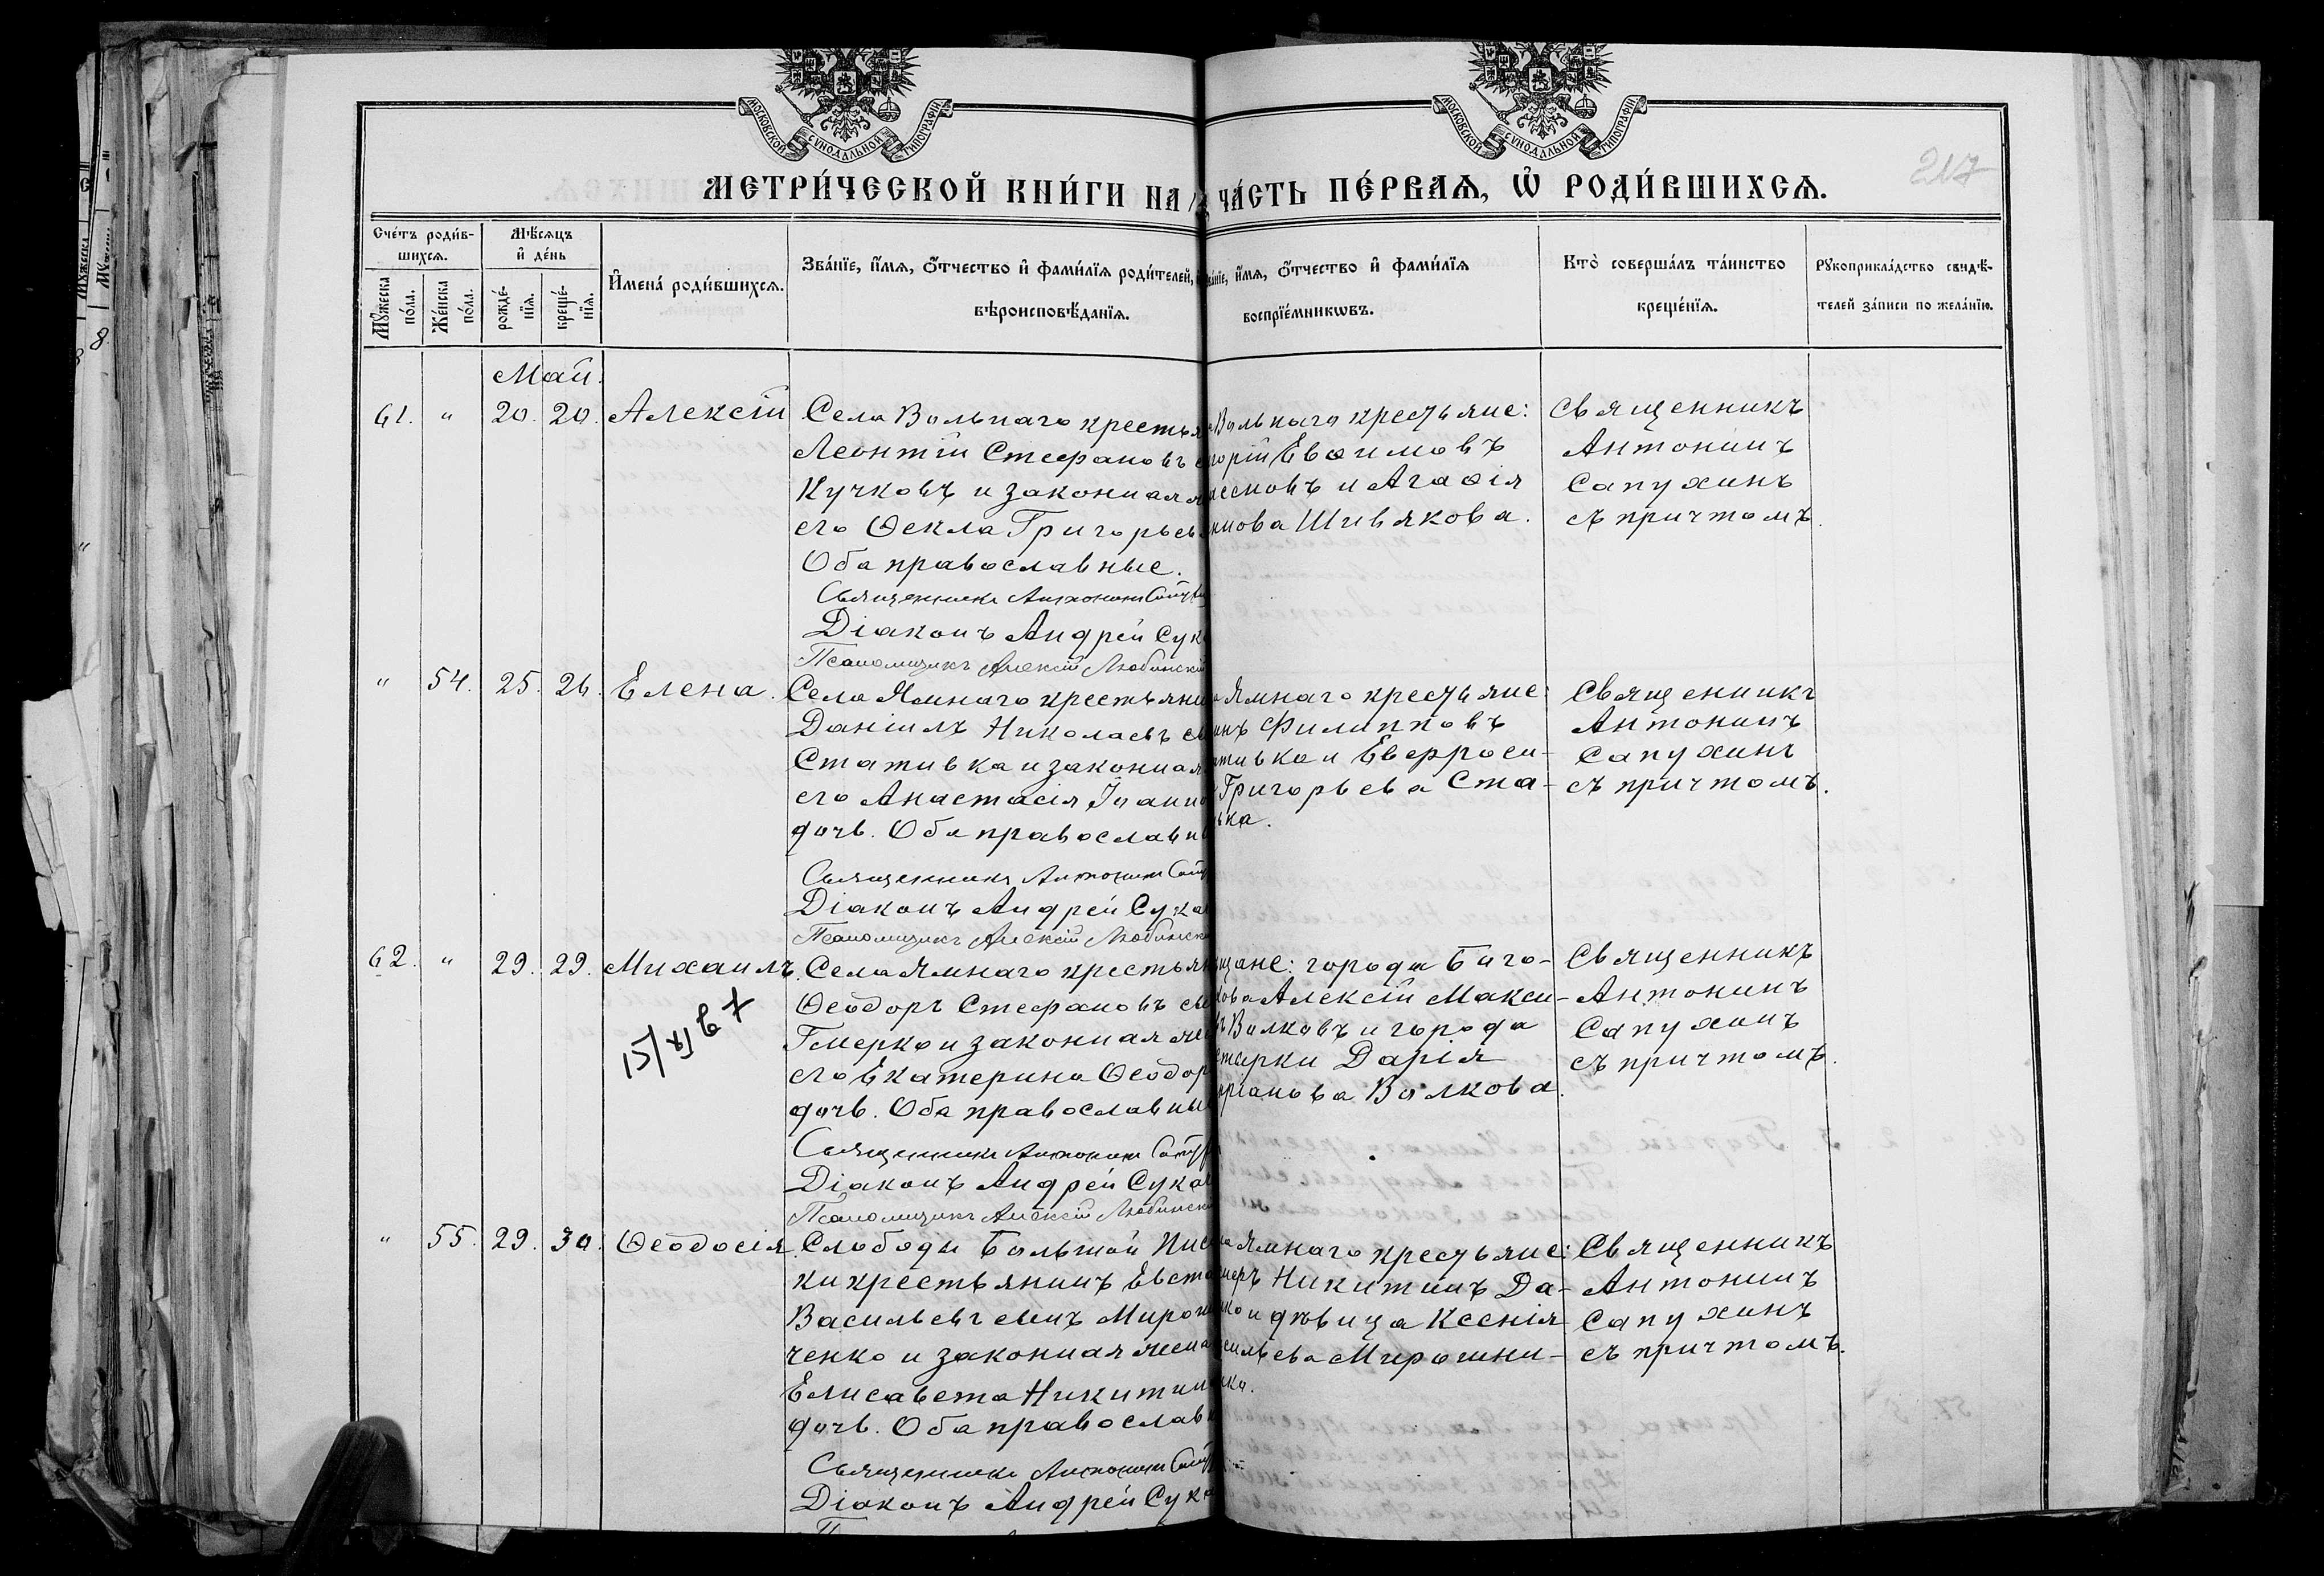 МОСКОВСКОЙ СУНОДАЛЬНОЙ ТИПОГРАФІИ
МОСКОВСКОЙ СУНОДАЛЬНОЙ ТИПОГРАФІИ
217
МЕТРИ́ЧЕСКОЙ КНИ́ГИ НА
ЧА́СТЬ ПЕ́РВАѦ, Ѡ҆ РОДИ́ВШИХСѦ.
Сче́тъ роди́в-
шихсѧ.
Мꙋ́жеска по́ла.
Же́нска по́ла.
Мѣ́сѧцъ
и҆ де́нь
рожде́-
нїѧ.
креще́-
нїѧ.
И҆мена̀ роди́вшихсѧ.
Зва́нїе, и҆́мѧ, ѻ҆́тчество и҆ фами́лїѧ роди́телей,
вѣроисповѣ́данїѧ.
и҆́мѧ, ѻ҆́тчество и҆ фами́лїѧ
воспрїе́мникѡвъ.
Кто̀ соверша́лъ та́инство
креще́нїѧ.
Рꙋкоприкла́дство свидѣ́-
телей за́писи по жела́нїю.
Май.
61. " 20. 20. Алексій
Села Вольнаго крестья
Леонтій Стефановъ
Кучковъ и законная
его Ѳекла Григорьев
Оба православные.
Священникъ Антонинъ
Діаконъ Андрей Сук
Псаломщикъ Алексій Любинскій
Вольнаго крестьяне:
горій Евѳимовъ
и Агаѳія
Шивякова.
Священникъ
Антонинъ
Сапухинъ
съ причтомъ.
" 54. 25. 26. Елена.
Села Ямнаго крестьяни
Даніилъ Николаевъ
Стативка и законная
его Анастасія Іоанно
дочь. Оба православн
Священникъ Антонинъ
Діаконъ Андрей Сука
Псаломщикъ Алексій Любинскій
Ямнаго крестьяне:
Филипповъ
тивка и Евфроси-
Григорьева Ста-
вка.
Священникъ
Антонинъ
Сапухинъ
съ причтомъ.
62. " 29. 29. Михаилъ.
Села Ямнаго крестьян
Ѳеодоръ Стефановъ
Гмерко и законная же
его Екатерина Ѳеодор
дочь. Оба православны
Священникъ Антонинъ
Діаконъ Андрей Сука
Псаломщикъ Алексій Любинскій
щане: города Бого-
хова Алексій Макси-
Волковъ и города
Дарія
Волкова.
Священникъ
Антонинъ
Сапухинъ
съ причтомъ.
" 55. 29. 30. Ѳеодосія.
Слободы Большой Пис
ки крестьянинъ Евста
Васильевъ сынъ Мирош
ченко и законная жена
Елисавета Никитин
дочь. Оба православ
Священникъ Антонинъ
Діаконъ Андрей Сука
Ямнаго крестьяне:
Никитинъ Да-
и дѣвица Ксенія
сильева Мирошни-
ко.
Священникъ
Антонинъ
Сапухинъ
съ причтомъ.